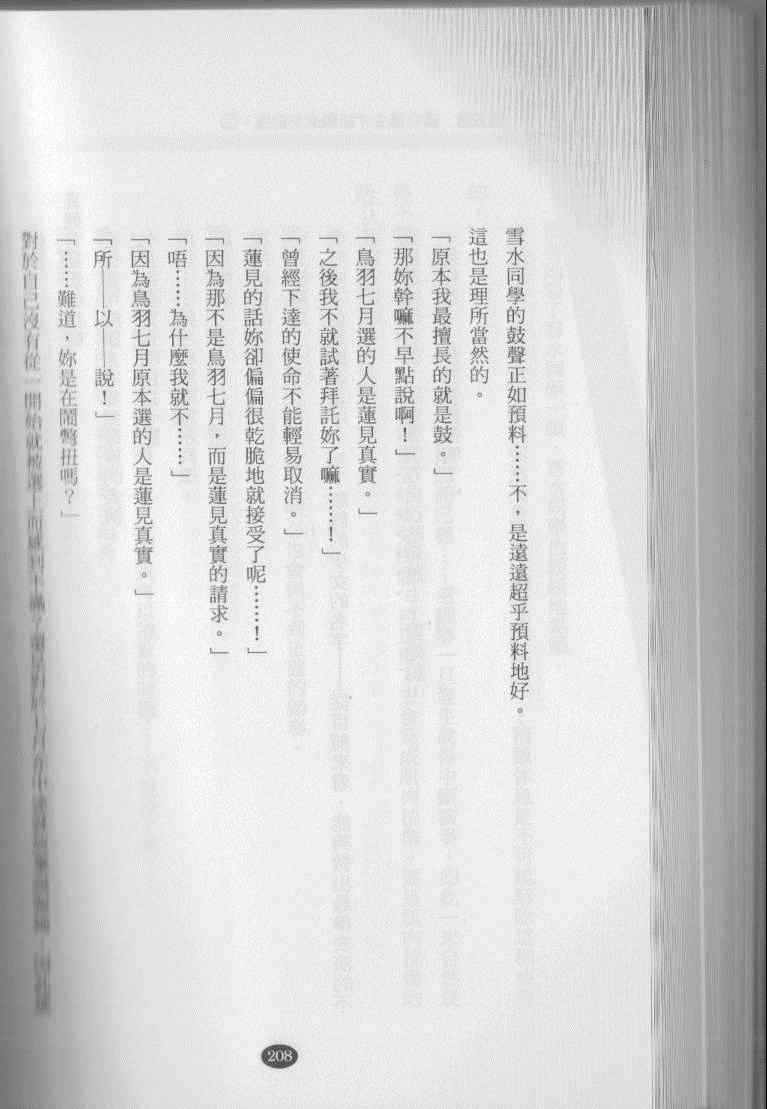 雪水同學的鼓聲正如預料……不，是遠遠超乎預料地好。
這也是理所當然的。
「原本我最擅長的就是鼓。」
「那妳幹嘛不早點說啊！」
「鳥羽七月選的人是蓮見真實。」
「之後我不就試著拜託妳了嘛……！」
「曾經下達的使命不能輕易取消。」
「蓮見的話妳卻偏偏很乾脆地就接受了呢……！」
「因為那不是鳥羽七月，而是蓮見真實的請求。」
「唔……為什麼我就不……」
「因為鳥羽七月原本選的人是蓮見真實。」
「所——以　說！」
「……難道，妳是在鬧彆扭嗎？」
對於自己沒有從一開始就被選上而感到不滿
208